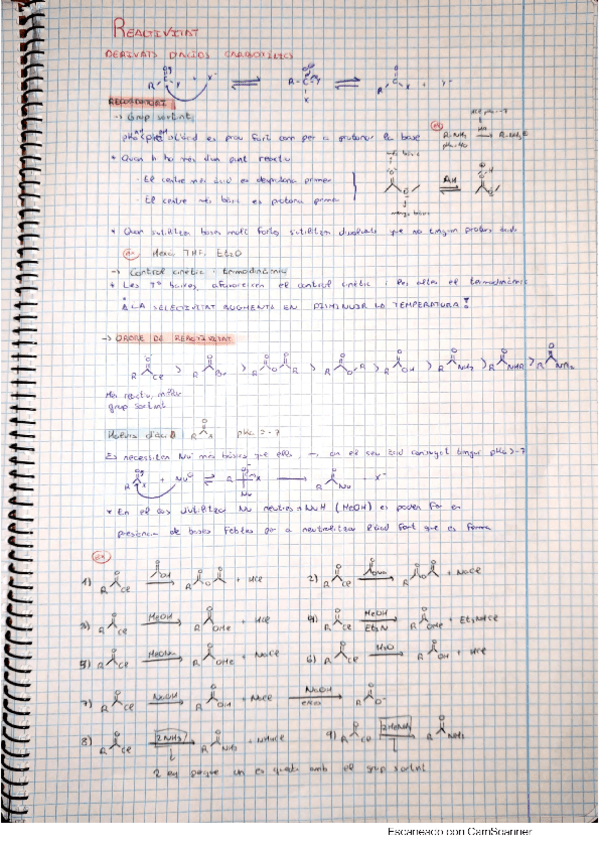 REACTIVITAT
DERIVATS D'ÀCIDS CARBOXÍLICS
RECORDATORI
→ Grup sortint
• Quan hi ha més d'un punt reactiu
- El centre més àcid es desprotona primer
- El centre més bàsic es protona primer
• Quan utilitzem bases molt forts utilitzem dissolvents que no tinguin protons àcids
Hexà, THF, Et2O
→ Control cinètic - termodinàmic
• Les Tª baixes, afavoreixen el control cinètic i les altes el termodinàmic
LA SELECTIVITAT AUGMENTA EN DISMINUIR LA TEMPERATURA!
→ ORDRE DE REACTIVITAT
Més reactiu, millor
grup sortint
Halurs d'àcid pKa > -7
Es necessiten Nu⁻ més bàsics que ells, → on el seu àcid conjugat tingui pKa > -7
• En el cas d'utilitzar Nu neutres NuH (MeOH) es poden fer en
presència de bases febles per a neutralitzar l'àcid fort que es forma
ex
1) R Cl OH + HCl
2) R Cl + NaCl
3) R Cl MeOH R OMe + HCl
4) R Cl MeOH Et3N R OMe + Et3NHCl
5) R Cl MeONa R OMe + NaCl
6) R Cl H2O R OH + HCl
7) R Cl NaOH R OH + NaCl NaOH R O⁻
8) R Cl 2NH3 R NH2 + NH4Cl
9) R Cl R NH2
2 eq perquè un es queda amb el grup sortint
Escaneado con CamScanner